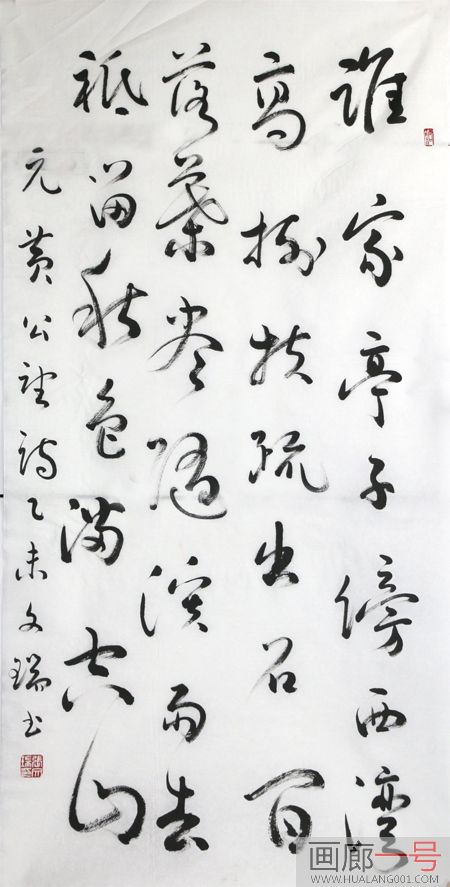 誰家亭子傍西灣
高樹扶疏出石間
落葉盡隨溪雨去
祗留秋色滿空山
元黄公望詩乙未文瑞書
画廊一号
WWW.HUALANG001.COM